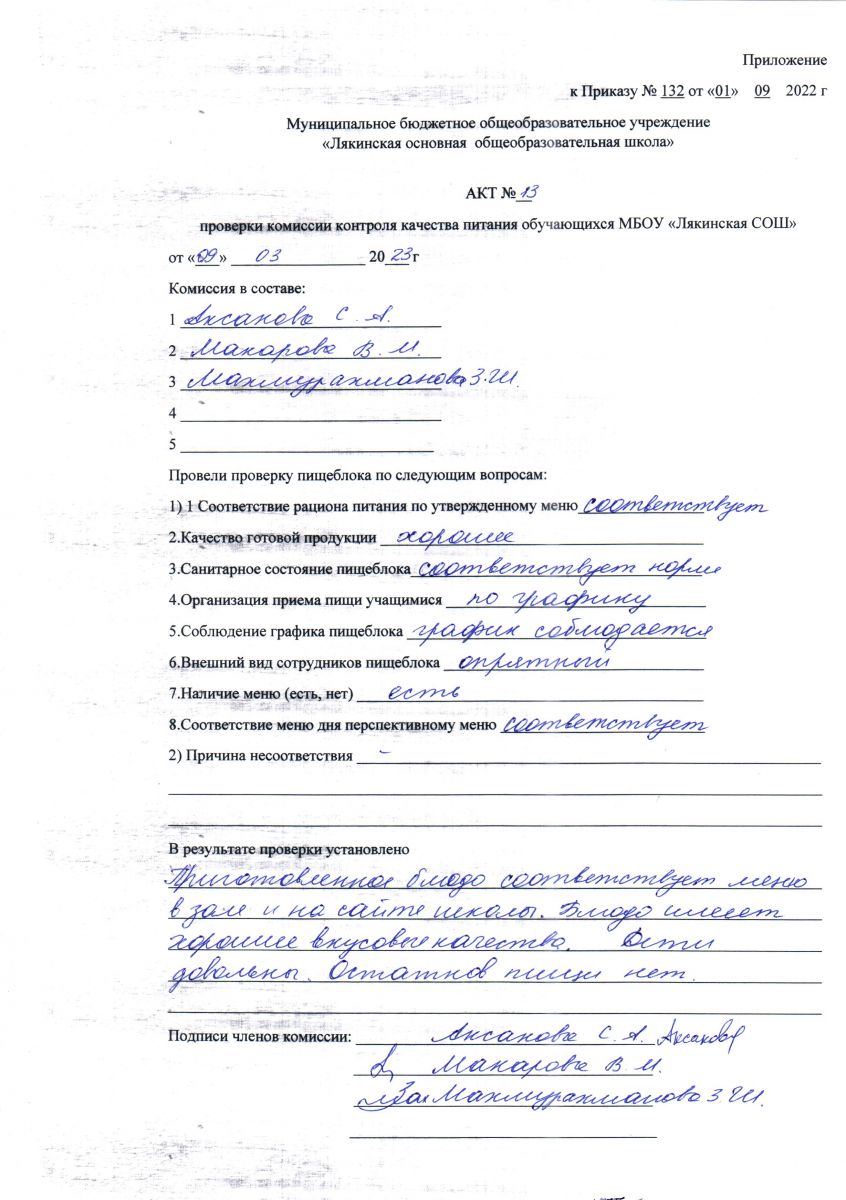 Приложение
к Приказу № 132 от «01» 09 2022 г
Муниципальное бюджетное общеобразовательное учреждение
«Лякинская основная общеобразовательная школа»
АКТ № 13
проверки комиссии контроля качества питания обучающихся МБОУ «Лякинская СОШ»
от «09» 03 2023 г
Комиссия в составе:
1 Аксанова С. А.
2 Макарова В. М.
3 Махмурахманова З.Ш.
4
5
Провели проверку пищеблока по следующим вопросам:
1) 1 Соответствие рациона питания по утвержденному меню соответствует
2.Качество готовой продукции хорошее
3.Санитарное состояние пищеблока соответствует норме
4.Организация приема пищи учащимися по графику
5.Соблюдение графика пищеблока график соблюдается
6.Внешний вид сотрудников пищеблока опрятный
7.Наличие меню (есть, нет) есть
8.Соответствие меню дня перспективному меню соответствует
2) Причина несоответствия -
В результате проверки установлено
Приготовленное блюдо соответствует меню
в зале и на сайте школы. Блюдо имеет
хорошие вкусовые качества. Дети
довольны. Остатков пищи нет.
Подписи членов комиссии: Аксанова С. А.
Макарова В. М.
Махмурахманова З.Ш.